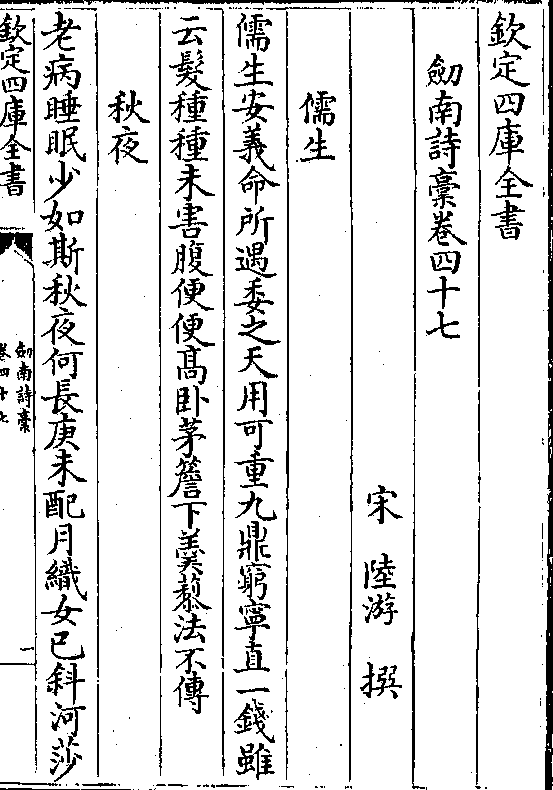 欽定四庫全書
劒南詩藁卷四十七
宋 陸游 撰
儒生
儒生安義命所遇委之天用可重九鼎窮寧直一錢雖
云髮種種未害腹便便髙卧茅簷下羮藜法不傳
秋夜
老病睡眠少如斯秋夜何長庚未配月織女已斜河莎
欽定四庫全書
劒南詩藁
卷四十七
一